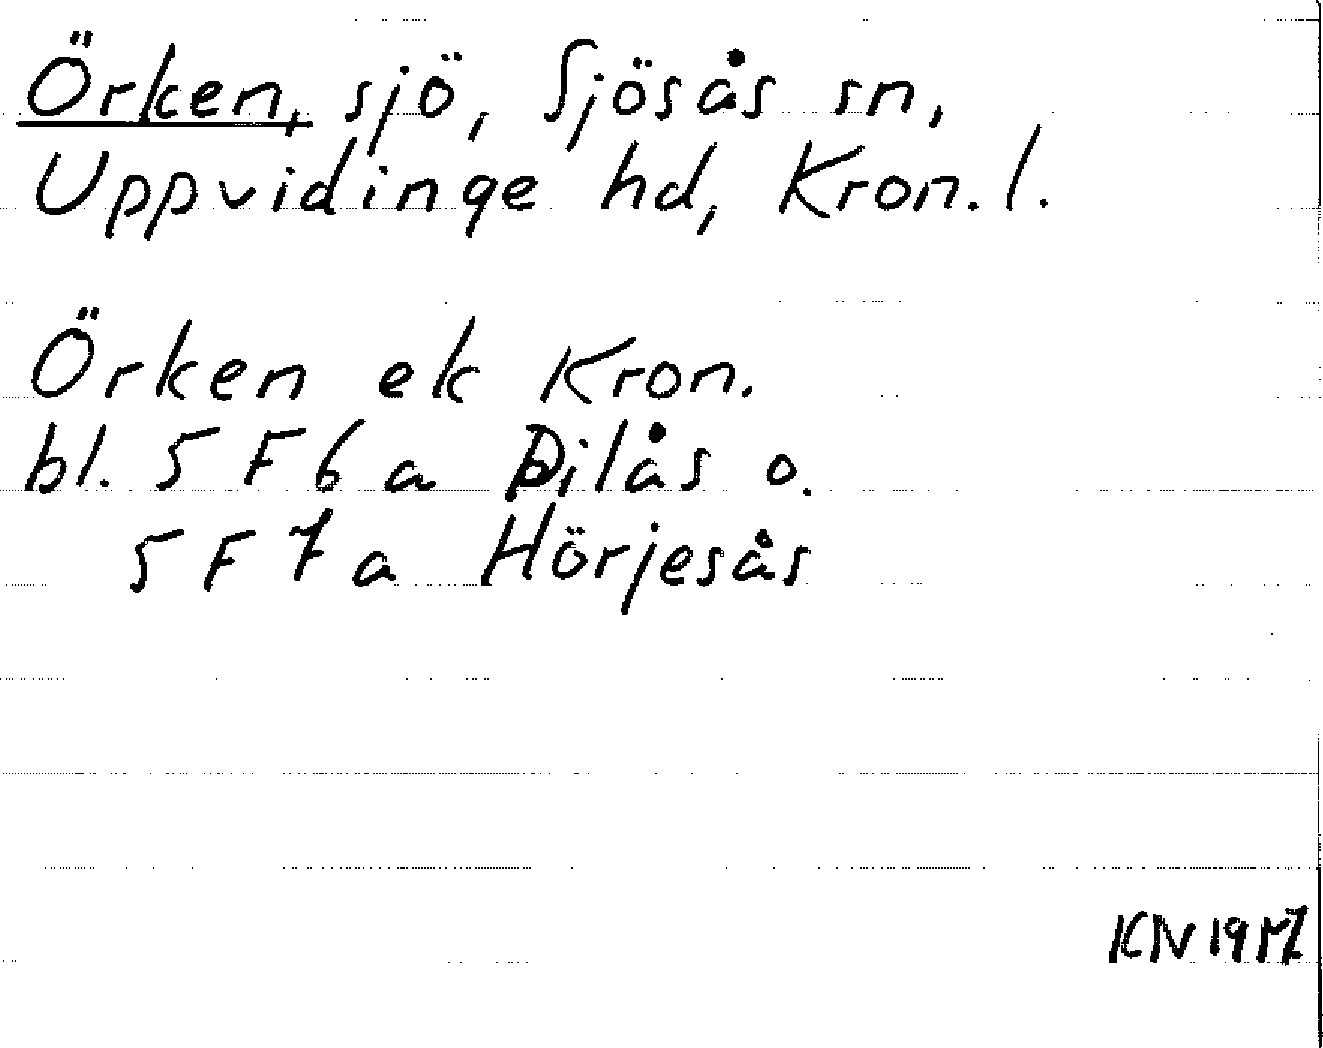 Örken, sjö, Sjösås sn,
Uppvidinge hd, Kron. l.
Örken ek Kron.
bl. 5 F 6 a Dilås o.
5 F 7 a Hörjesås
KN